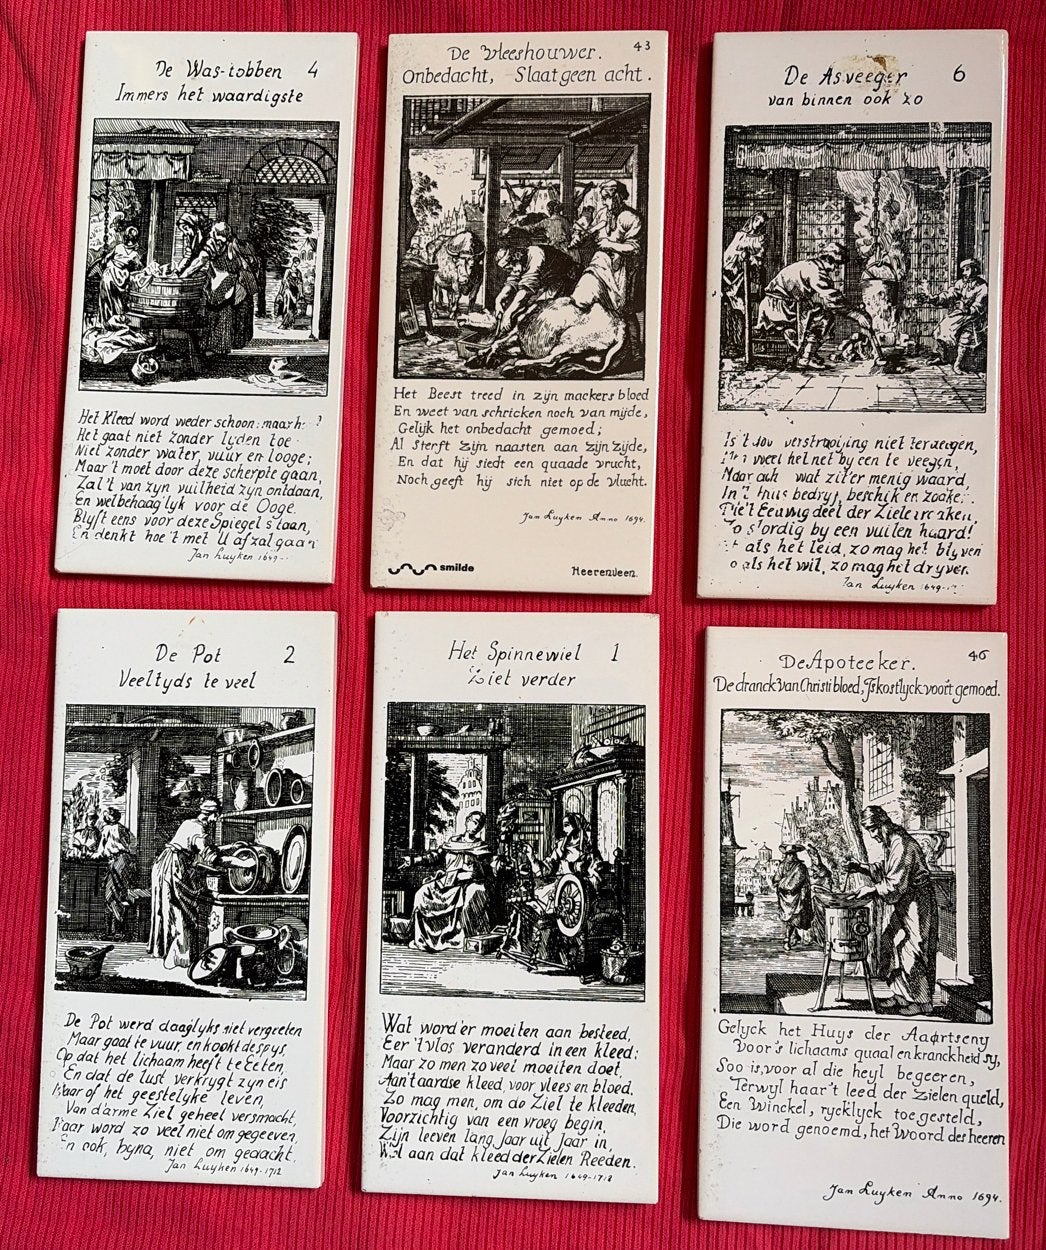 De Was-tobben 4
Immers het waardigste
Het Kleed word weder schoon:
Het gaat niet zonder lyden toe
Niet zonder water, vuur en looge;
Maar 't moet door deze scherpte gaan,
Zal 't van zyn vuilheid zyn ontdaan,
En welbehaaglyk voor de Ooge.
Blyft eens voor deze Spiegel staan,
En denkt hoe 't met U af zal gaan
Jan Luyken 1649-
De Vleeshouwer. 43
Onbedacht, Slaat geen acht.
Het Beest treed in zijn mackers bloed
En weet van schricken noch van mijde,
Gelijk het onbedacht gemoed;
Al sterft zijn naasten aan zijn zijde,
En dat hij siedt een quaade vrucht,
Noch geeft hij sich niet op de vlucht.
Jan Luyken Anno 1694.
smilde Heerenveen.
De Asveeger 6
van binnen ook zo
Is 't verstrooijing niet
by een te veegen,
Maar ach wat zit'er menig waard,
In 't bedryf, beschik en
Eeuwig deel der Ziele
slordig by een vuilen haard!
als het leid, zo mag het blyven
als het wil, zo mag het dryven.
Jan Luyken 1649-
De Pot 2
Veeltyds te veel
De Pot werd daaglyks niet vergeeten
Maar gaat te vuur, en kookt de spys,
Op dat het lichaam heeft te Eeten,
En dat de lust verkrygt zyn eis
Maar of het geestelyke leven,
Van d'arme Ziel geheel versmacht,
Daar word zo veel niet om gegeeven,
En ook, byna, niet om gedacht.
Jan Luyken 1649-1712
Het Spinnewiel 1
Ziet verder
Wat word'er moeiten aan besteed,
Eer 't vlas veranderd in een kleed:
Maar zo men zo veel moeiten doet,
Aan 't aardse kleed, voor vlees en bloed,
Zo mag men, om de Ziel te kleeden,
Voorzichtig van een vroeg begin,
Zijn leeven lang, Jaar uit, Jaar in,
Wel aan dat kleed der Zielen Reeden.
Jan Luyken 1649-1712
De Apoteeker. 46
De dranck van Christi bloed, Is kostlyck voor't gemoed.
Gelyck het Huys der Aaørtseny
Voor's lichaams quaal en kranckheid sy,
Soo is, voor al die heyl begeeren,
Terwyl haar't leed der Zielen queld,
Een Winckel, rycklyck toegesteld,
Die word genoemd, het Woord des heeren
Jan Luyken Anno 1694.